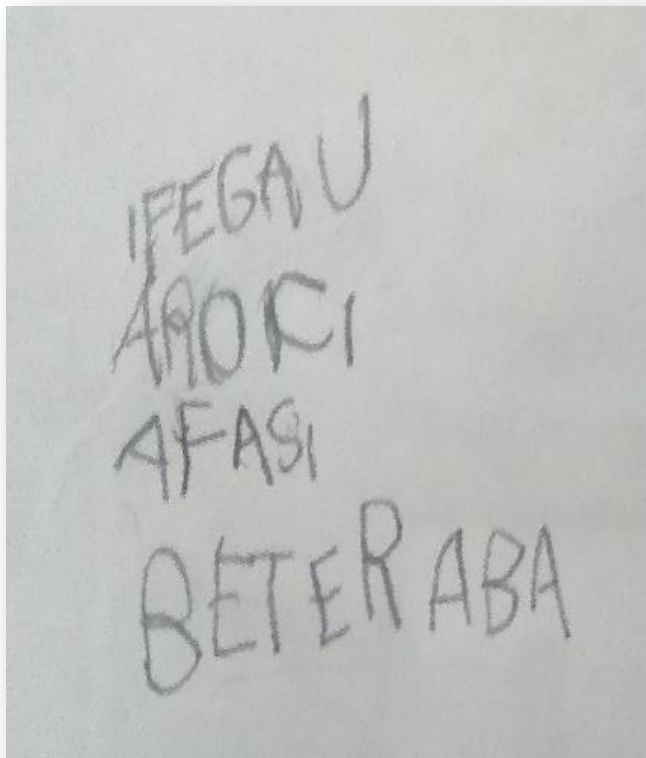 IFEGAU
AROKI
AFASI
BETERABA